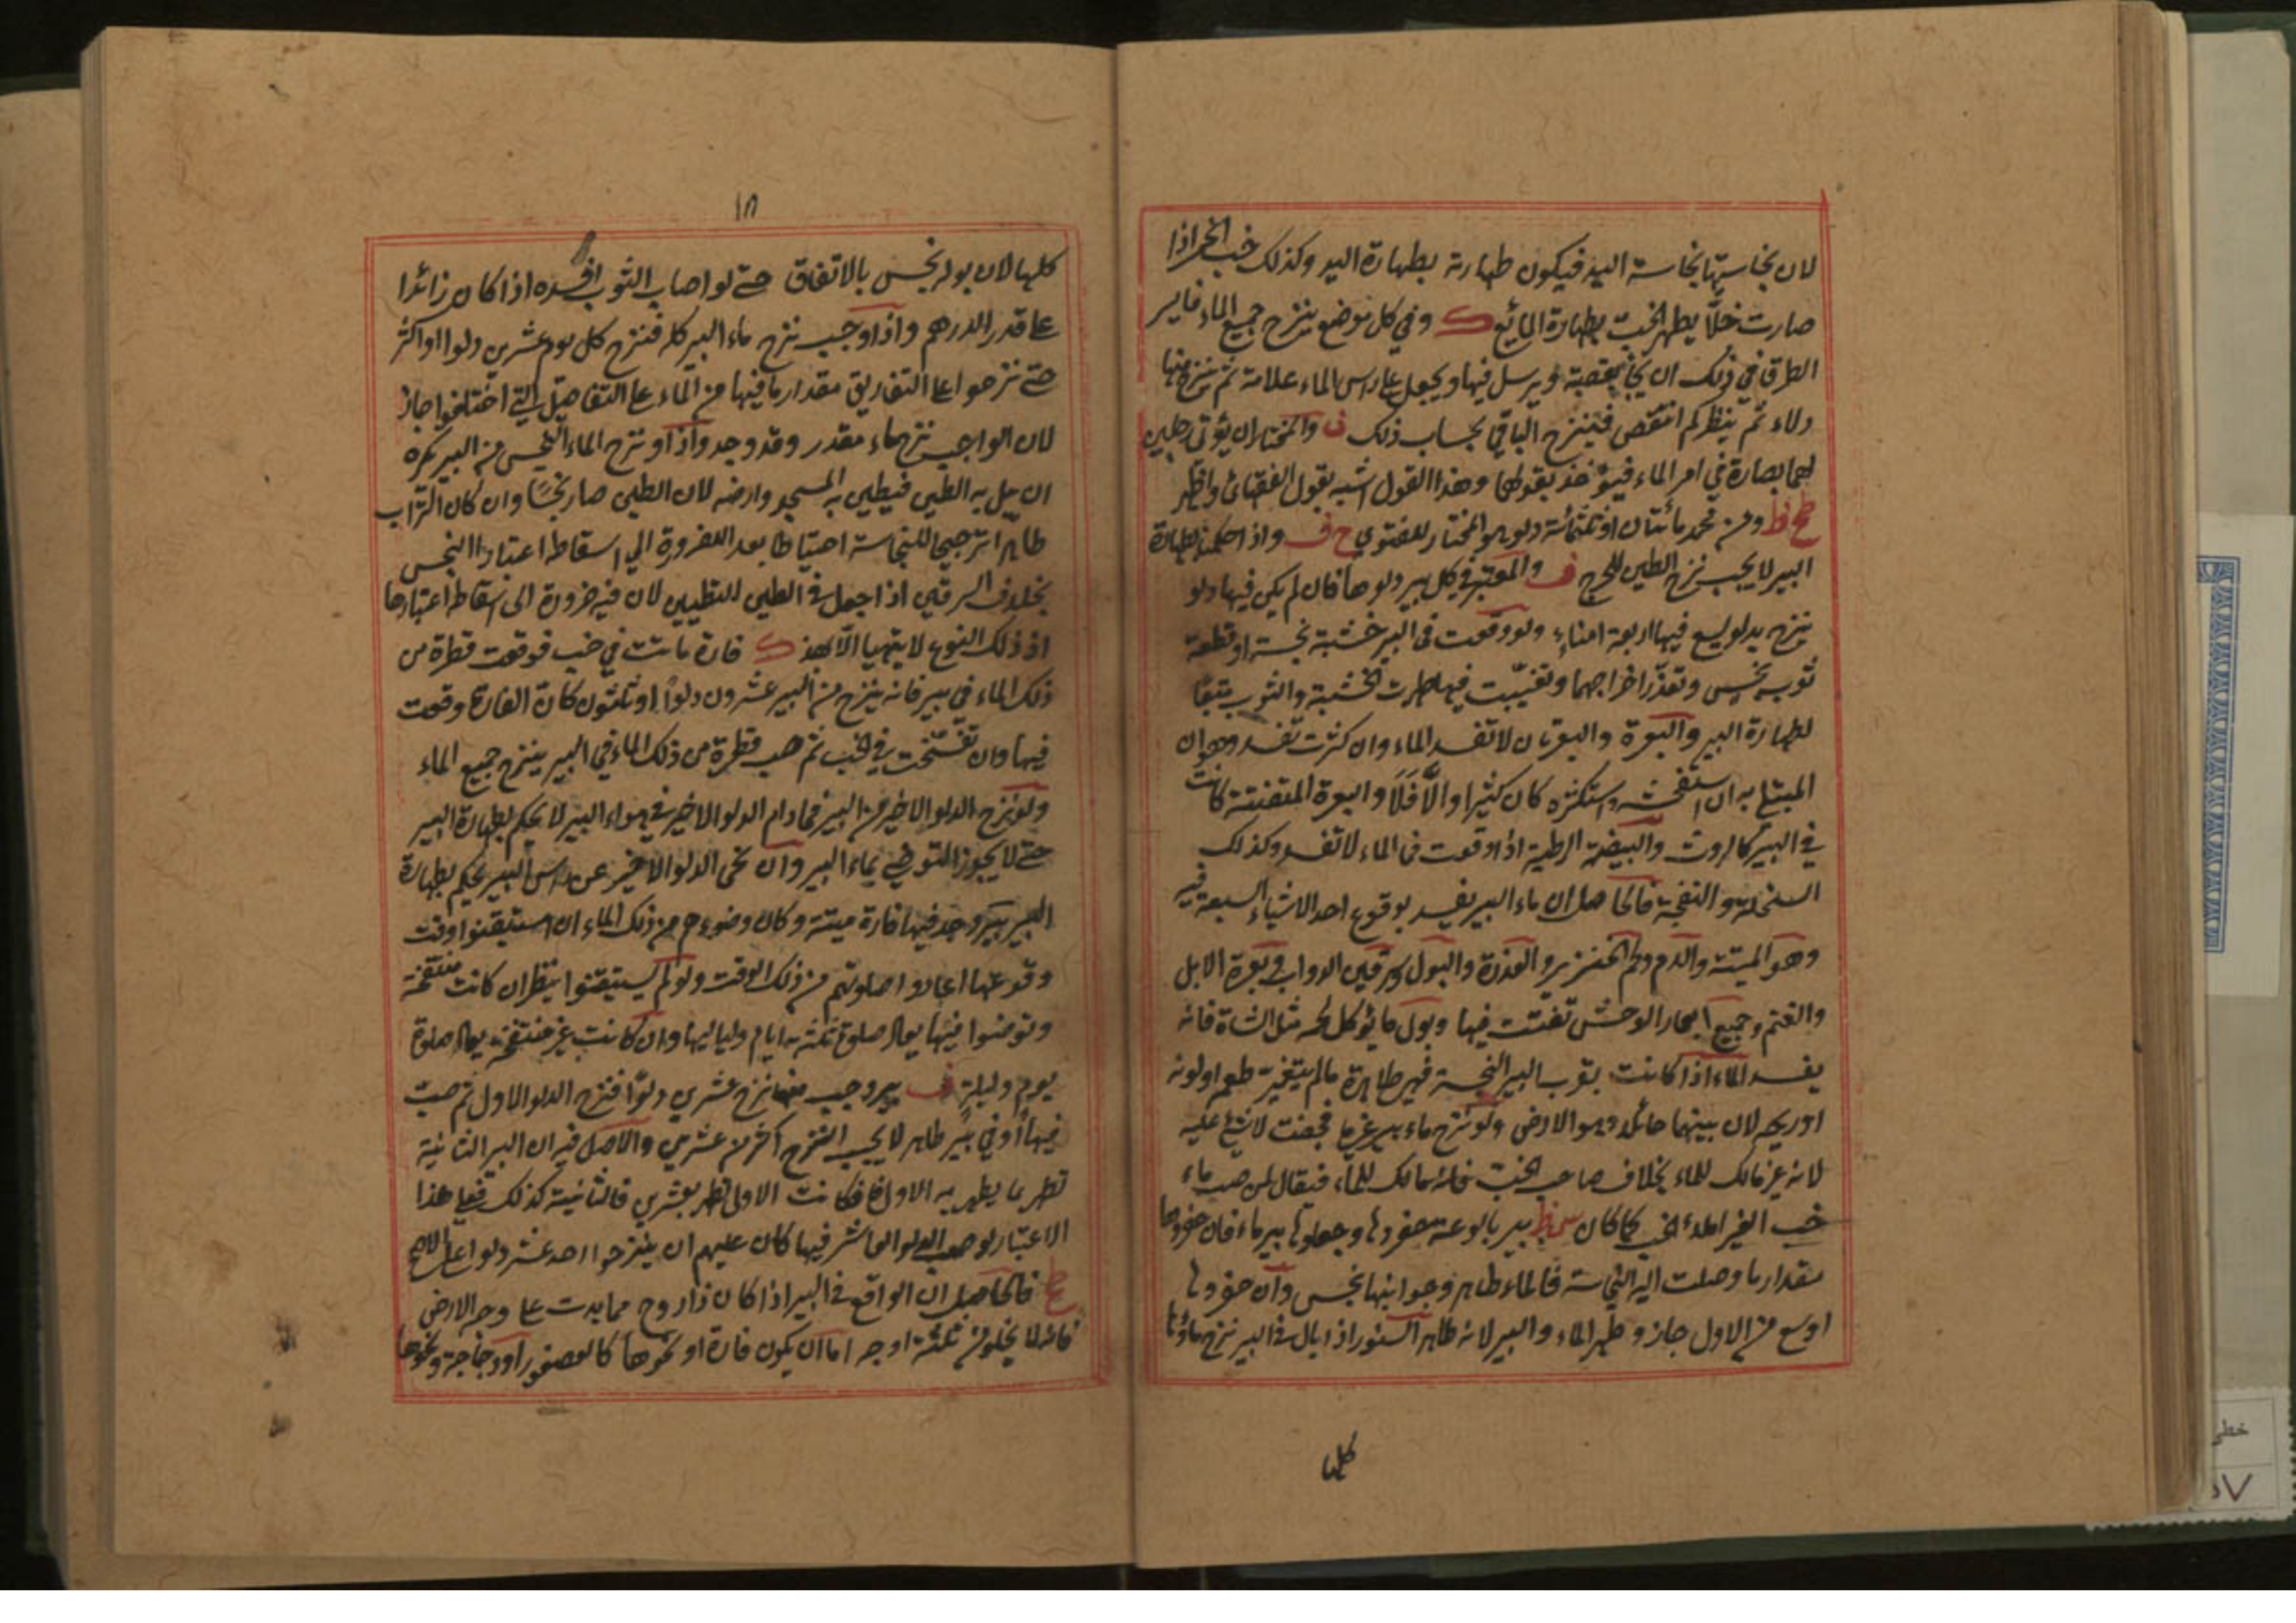 لان نجاستها نجاسة اليد فيكون طهارته بطهارة اليد وكذلك خب الخمر اذا
صارت خلًا يطهر الخب بطهارة المائع ك وفي كل موضع ينزح جميع الماء فايسر
الطرق في ذلك ان يجاء بقصبة ويرسل فيها ويجعل على راس الماء علامة ثم ينزح منها
دلاء ثم ينظر كم انتقص فينزح الباقي بحساب ذلك ف والمختار ان يؤتى رجلين
لهما بصارة في امر الماء فيؤخذ بقولهما وهذا القول اشبه بقول الفقهاء واظهر
وعن محمد مائتان او ثلثمائة دلو هو المختار للفتوى ح ف واذا حكمنا بطهارة
البير لا يجب نزح الطين للحرج ف والمعتبر في كل بير دلوها فان لم يكن فيها دلو
ينزح بدلو يسع فيها اربعة امناء ولو وقعت في البير خشبة نجسة او قطعة
ثوب نجس وتعذر اخراجهما وتغيبت فيها طهرت الخشبة والثوب تبعًا
لطهارة البير والبعرة والبعرتان لا تفسد الماء وان كثرت تفسد وهو ان
المبتلى به ان استفحشه واستكثره كان كثيرا والّا فلا والبعرة المتفتتة كانت
في البير كالروث والبيضة الرطبة اذا وقعت في الماء لا تفسد وكذلك
السخلة والنفجة فالحاصل ان ماء البير يفسد بوقوع احد الاشياء السبعة فيه
وهو الميتة والدم ولحم الخنزير والعذرة والبول وسرقين الدواب وبعرة الابل
والغنم وجميع الحمار الوحش تفتتت فيها وبول ما يؤكل لحمه مثل الشاة فانه
يفسد الماء اذا كانت بقرب البير النجسة فهي طاهرة ما لم يتغير طعمه او لونه
او ريحه لان بينهما حائلا وهو الارض ولو نزح ماء بير غيره فجفت لا شئ عليه
لانه غير مالك للماء بخلاف صاحب الخب فانه مالك للماء فيقال لمن صب ماء
خب الغير املاء الخب كما كان بير بالوعة حفروها وجعلوها بير ماء فان حفروها
مقدار ما وصلت اليه النجاسة فالماء طاهر وجوانبها نجس وان حفروها
اوسع من الاول جاز وطهر الماء والبير لانه طاهر السنور اذا بال في البير نزح ماؤها
كلها
١٨
كلها لان بوله نجس بالاتفاق حتى لو اصاب الثوب افسده اذا كان زائدا
على قدر الدرهم واذا وجب نزح ماء البير كله فنزح كل يوم عشرين دلوا او اكثر
حتى نزحوا على التفاريق مقدار ما فيها من الماء على التفاصيل التي اختلفوا جاز
لان الواجب نزح ماء مقدر وقد وجد واذا نزح الماء النجس من البير يكره
ان يبل به الطين فيطين به المسجد وارضه لان الطين صار نجسًا وان كان التراب
طاهرا ترجيحا للنجاسة احتياطا بعد الضرورة الى اسقاط اعتبار النجس
بخلاف السرقين اذا جعل في الطين للتطيين لان فيه ضرورة الى اسقاط اعتبارها
اذ ذلك النوع لا يتهيا الّا بهذا ك فارة ماتت في خب فوقعت قطرة من
ذلك الماء في بير فانه ينزح من البير عشرون دلوًا او ثلثون كأن الفارة وقعت
فيها وان تفسخت في الخب ثم صب قطرة من ذلك الماء في البير ينزح جميع الماء
ولو نزح الدلو الاخير من البير فما دام الدلو الاخير في هواء البير لا يحكم بطهارة البير
حتى لا يجوز التوضي بماء البير وان نحى الدلو الاخير عن راس البير يحكم بطهارة
البير بير وجد فيها فارة ميتة وكان وضوءهم من ذلك الماء ان استيقنوا وقت
وقوعها اعادوا صلوتهم من ذلك الوقت ولو لم يستيقنوا ينظر ان كانت منتفخة
وتوضئوا فيها يعاد صلوة ثلثة ايام ولياليها وان كانت غير منتفخة يعاد صلوة
يوم وليلة ف بير وجب منها نزح عشرين دلوًا فنزح الدلو الاول ثم صب
فيها او في بير طاهر لا يجب النزح اكثر من عشرين والاصل فيه ان البير الثانية
تطهر بما يطهر به الاول فكانت الاولى تطهر بعشرين فالثانية كذلك فعلى هذا
الاعتبار لو صب الدلو العاشر فيها كان عليهم ان ينزحوا احد عشر دلوا على الاصح
فالحاصل ان الواقع في البير اذا كان ذا روح مما يدب على وجه الارض
فانه لا يخلو من ثلثة اوجه اما ان يكون فارة او نحوها كالعصفور او دجاجة ونحوها
خطي
٧